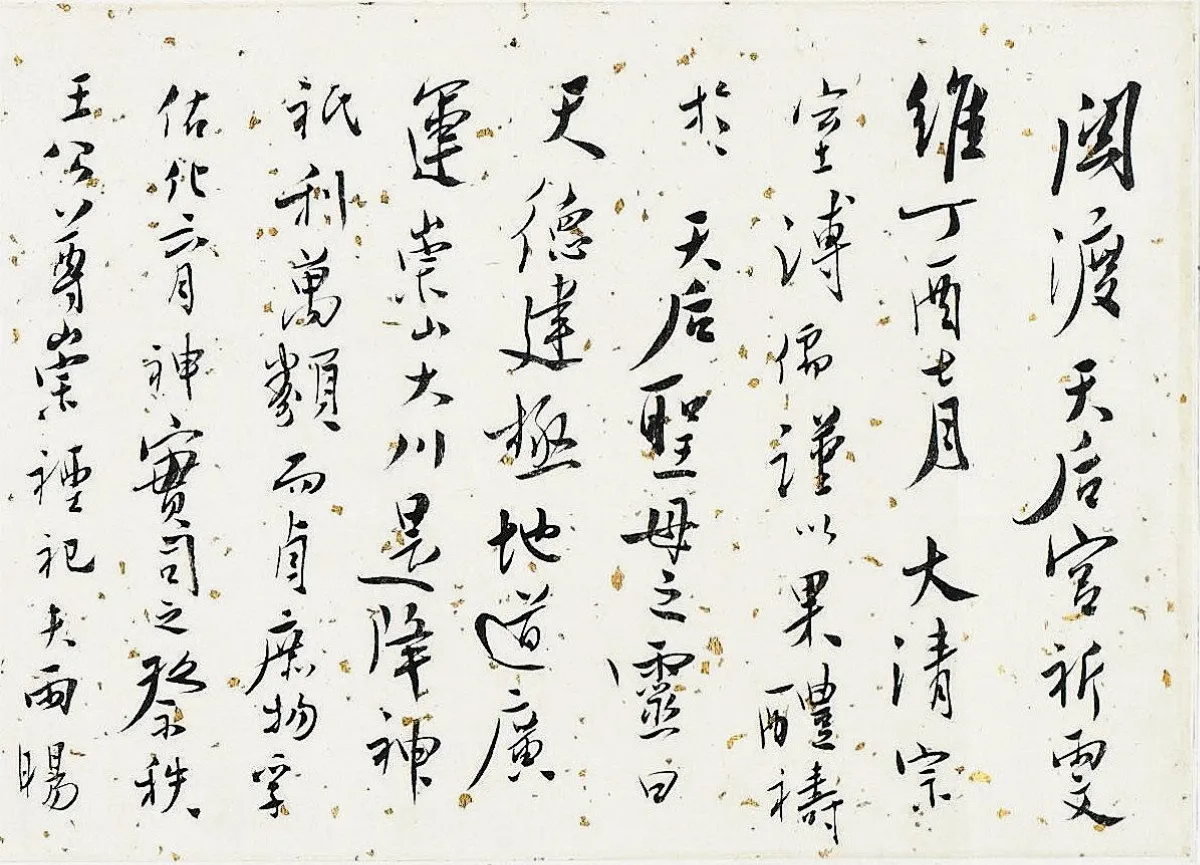 関渡天后宮祈雨文
維丁酉七月大清宗
室溥儒謹以果醴禱
於天后聖母之靈曰
天德建極地道廣
運崇山大川是降神
祇利萬類而貞庶物孚
佑化育神實司之祭秩
王公尊崇禋祀夫雨暘